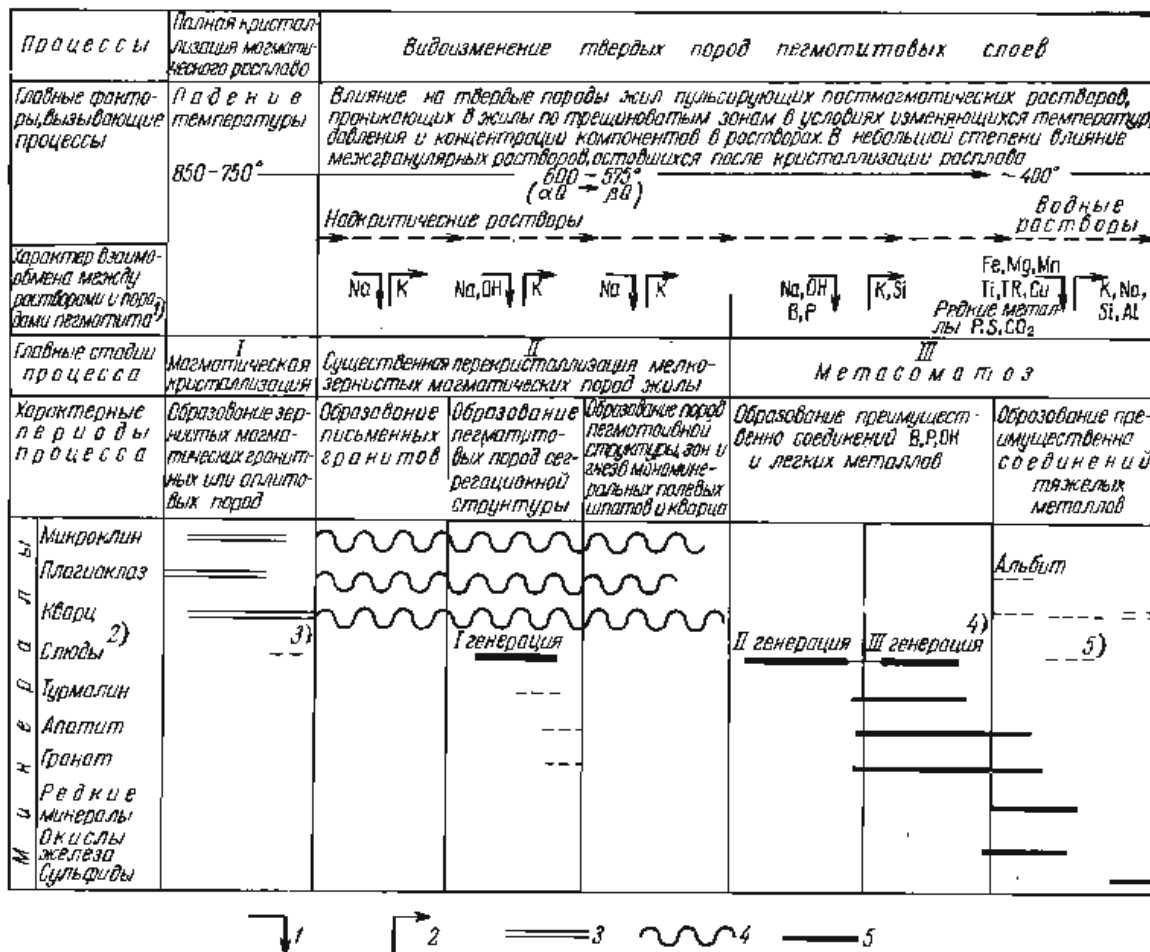 Процессы
Полная кристал-
лизация магмати-
ческого расплава
Видоизменение твердых пород пегматитовых слоев
Главные факто-
ры, вызывающие
процессы
Падение
температуры
850-750°
Влияние на твердые породы жил пульсирующих постмагматических растворов,
проникающих в жилы по трещиноватым зонам в условиях изменяющихся температур,
давления и концентрации компонентов в растворах. В небольшой степени влияние
межгранулярных растворов, оставшихся после кристаллизации расплава
600-575°
(αQ → βQ)
~400°
Надкритические растворы
Водные
растворы
Характер взаимо-
обмена между
растворами и поро-
дами пегматита 1)
Na K
Na, OH K
Na K
Na, OH
B, P
K, Si
Fe, Mg, Mn
Ti, TR, Cu
Редкие метал-
лы P, S, CO₂
K, Na,
Si, Al
Главные стадии
процесса
I
Магматическая
кристаллизация
II
Существенная перекристаллизация мелко-
зернистых магматических пород жилы
III
Метасоматоз
Характерные
периоды
процесса
Образование зер-
нистых магма-
тических гранит-
ных или аплито-
вых пород
Образование
письменных
гранитов
Образование
пегматито-
вых пород сег-
регационной
структуры
Образование пород
пегматоидной
структуры, зон и
гнезд мономине-
ральных полевых
шпатов и кварца
Образование преимущест-
венно соединений B, P, OH
и легких металлов
Образование пре-
имущественно
соединений
тяжелых
металлов
Минералы
Микроклин
Плагиоклаз
Альбит
Кварц
Слюды 2)
3)
I генерация
II генерация
III генерация
4)
5)
Турмалин
Апатит
Гранат
Редкие
минералы
Окислы
железа
Сульфиды
1 2 3 4 5